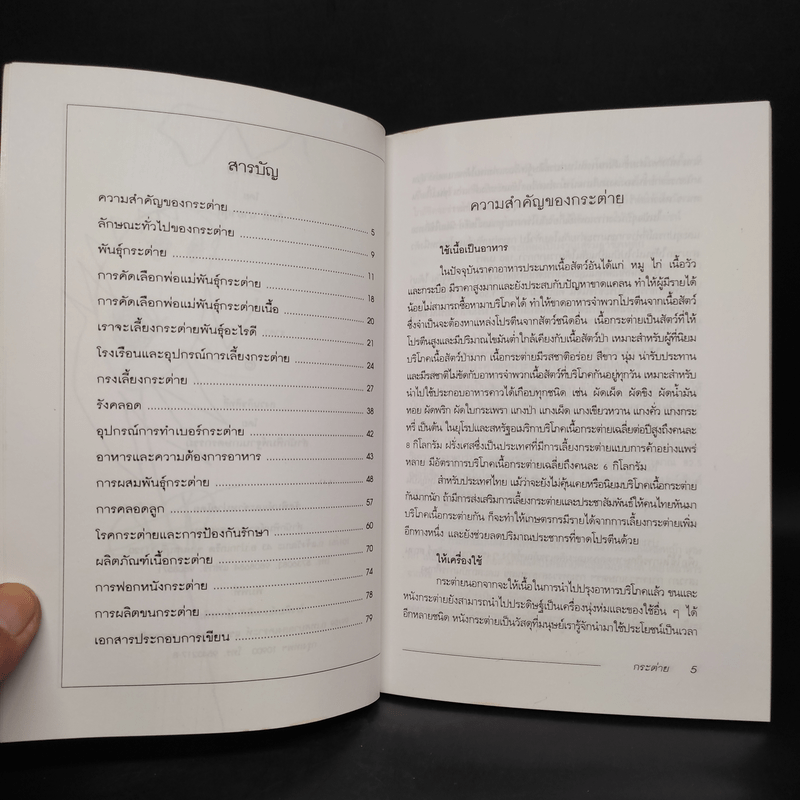 สารบัญ
ความสำคัญของกระต่าย 5
ลักษณะทั่วไปของกระต่าย 9
พันธุ์กระต่าย 11
การคัดเลือกพ่อแม่พันธุ์กระต่าย 18
การคัดเลือกพ่อแม่พันธุ์กระต่ายเนื้อ 20
เราจะเลี้ยงกระต่ายพันธุ์อะไรดี 21
โรงเรือนและอุปกรณ์การเลี้ยงกระต่าย 24
กรงเลี้ยงกระต่าย 27
รังคลอด 38
อุปกรณ์การทำเบอร์กระต่าย 42
อาหารและความต้องการอาหาร 43
การผสมพันธุ์กระต่าย 48
การคลอดลูก 57
โรคกระต่ายและการป้องกันรักษา 60
ผลิตภัณฑ์เนื้อกระต่าย 70
การฟอกหนังกระต่าย 74
การผลิตขนกระต่าย 78
เอกสารประกอบการเขียน 79
ความสำคัญของกระต่าย
ใช้เนื้อเป็นอาหาร
ในปัจจุบันราคาอาหารประเภทเนื้อสัตว์อันได้แก่ หมู ไก่ เนื้อวัว
และกระบือ มีราคาสูงมากและยังประสบกับปัญหาขาดแคลน ทำให้ผู้มีรายได้
น้อยไม่สามารถซื้อหามาบริโภคได้ ทำให้ขาดอาหารจำพวกโปรตีนจากเนื้อสัตว์
ซึ่งจำเป็นจะต้องหาแหล่งโปรตีนจากสัตว์ชนิดอื่น เนื้อกระต่ายเป็นสัตว์ที่ให้
โปรตีนสูงและมีปริมาณไขมันต่ำใกล้เคียงกับเนื้อสัตว์ป่า เหมาะสำหรับผู้ที่นิยม
บริโภคเนื้อสัตว์ป่ามาก เนื้อกระต่ายมีรสชาติอร่อย สีขาว นุ่ม น่ารับประทาน
และมีรสชาติไม่ขัดกับอาหารจำพวกเนื้อสัตว์ที่บริโภคกันอยู่ทุกวัน เหมาะสำหรับ
นำไปใช้ประกอบอาหารคาวได้เกือบทุกชนิด เช่น ผัดเผ็ด ผัดขิง ผัดน้ำมัน
หอย ผัดพริก ผัดใบกระเพรา แกงป่า แกงเผ็ด แกงเขียวหวาน แกงคั่ว แกงกระ
หรี่ เป็นต้น ในยุโรปและสหรัฐอเมริกาบริโภคเนื้อกระต่ายเฉลี่ยต่อปีสูงถึงคนละ
8 กิโลกรัม ฝรั่งเศสซึ่งเป็นประเทศที่มีการเลี้ยงกระต่ายแบบการค้าอย่างแพร่
หลาย มีอัตราการบริโภคเนื้อกระต่ายเฉลี่ยถึงคนละ 6 กิโลกรัม
สำหรับประเทศไทย แม้ว่าจะยังไม่คุ้นเคยหรือนิยมบริโภคเนื้อกระต่าย
กันมากนัก ถ้ามีการส่งเสริมการเลี้ยงกระต่ายและประชาสัมพันธ์ให้คนไทยหันมา
บริโภคเนื้อกระต่ายกัน ก็จะทำให้เกษตรกรมีรายได้จากการเลี้ยงกระต่ายเพิ่ม
อีกทางหนึ่ง และยังช่วยลดปริมาณประชากรที่ขาดโปรตีนด้วย
ให้เครื่องใช้
กระต่ายนอกจากจะให้เนื้อในการนำไปปรุงอาหารบริโภคแล้ว ขนและ
หนังกระต่ายยังสามารถนำไปประดิษฐ์เป็นเครื่องนุ่งห่มและของใช้อื่น ๆ ได้
อีกหลายชนิด หนังกระต่ายเป็นวัสดุที่มนุษย์เรารู้จักนำมาใช้ประโยชน์เป็นเวลา
กระต่าย 5